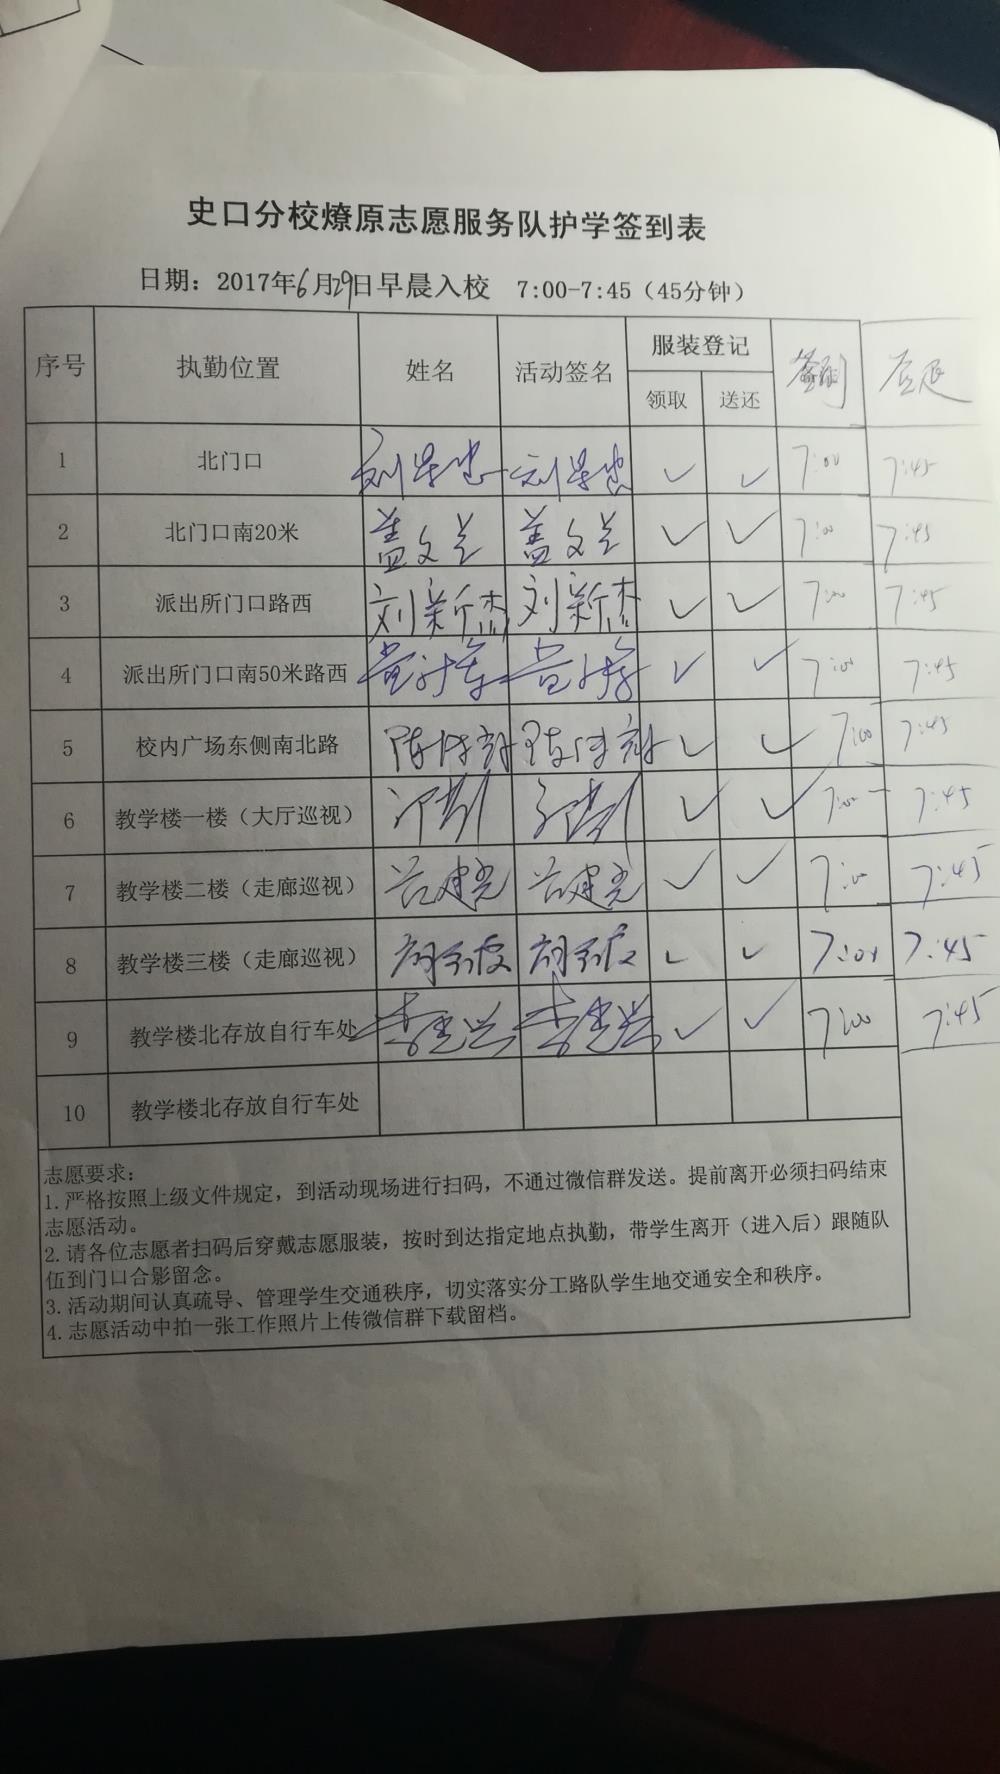 史口分校燎原志愿服务队护学签到表
日期：2017年6月29日早晨入校 7:00-7:45（45分钟）
序号 执勤位置 姓名 活动签名 服装登记 签到
领取 送还
1 北门口 ✓ ✓ 7:00 7:45
2 北门口南20米 盖文兰 盖文兰 ✓ ✓ 7:00 7:45
3 派出所门口路西 刘新杰 刘新杰 ✓ ✓ 7:00 7:45
4 派出所门口南50米路西 ✓ ✓ 7:00 7:45
5 校内广场东侧南北路 ✓ ✓ 7:00 7:45
6 教学楼一楼（大厅巡视） ✓ ✓ 7:00 7:45
7 教学楼二楼（走廊巡视） ✓ ✓ 7:00 7:45
8 教学楼三楼（走廊巡视） ✓ ✓ 7:01 7:45
9 教学楼北存放自行车处 ✓ ✓ 7:00 7:45
10 教学楼北存放自行车处
志愿要求：
1.严格按照上级文件规定，到活动现场进行扫码，不通过微信群发送。提前离开必须扫码结束
志愿活动。
2.请各位志愿者扫码后穿戴志愿服装，按时到达指定地点执勤，带学生离开（进入后）跟随队
伍到门口合影留念。
3.活动期间认真疏导、管理学生交通秩序，切实落实分工路队学生地交通安全和秩序。
4.志愿活动中拍一张工作照片上传微信群下载留档。